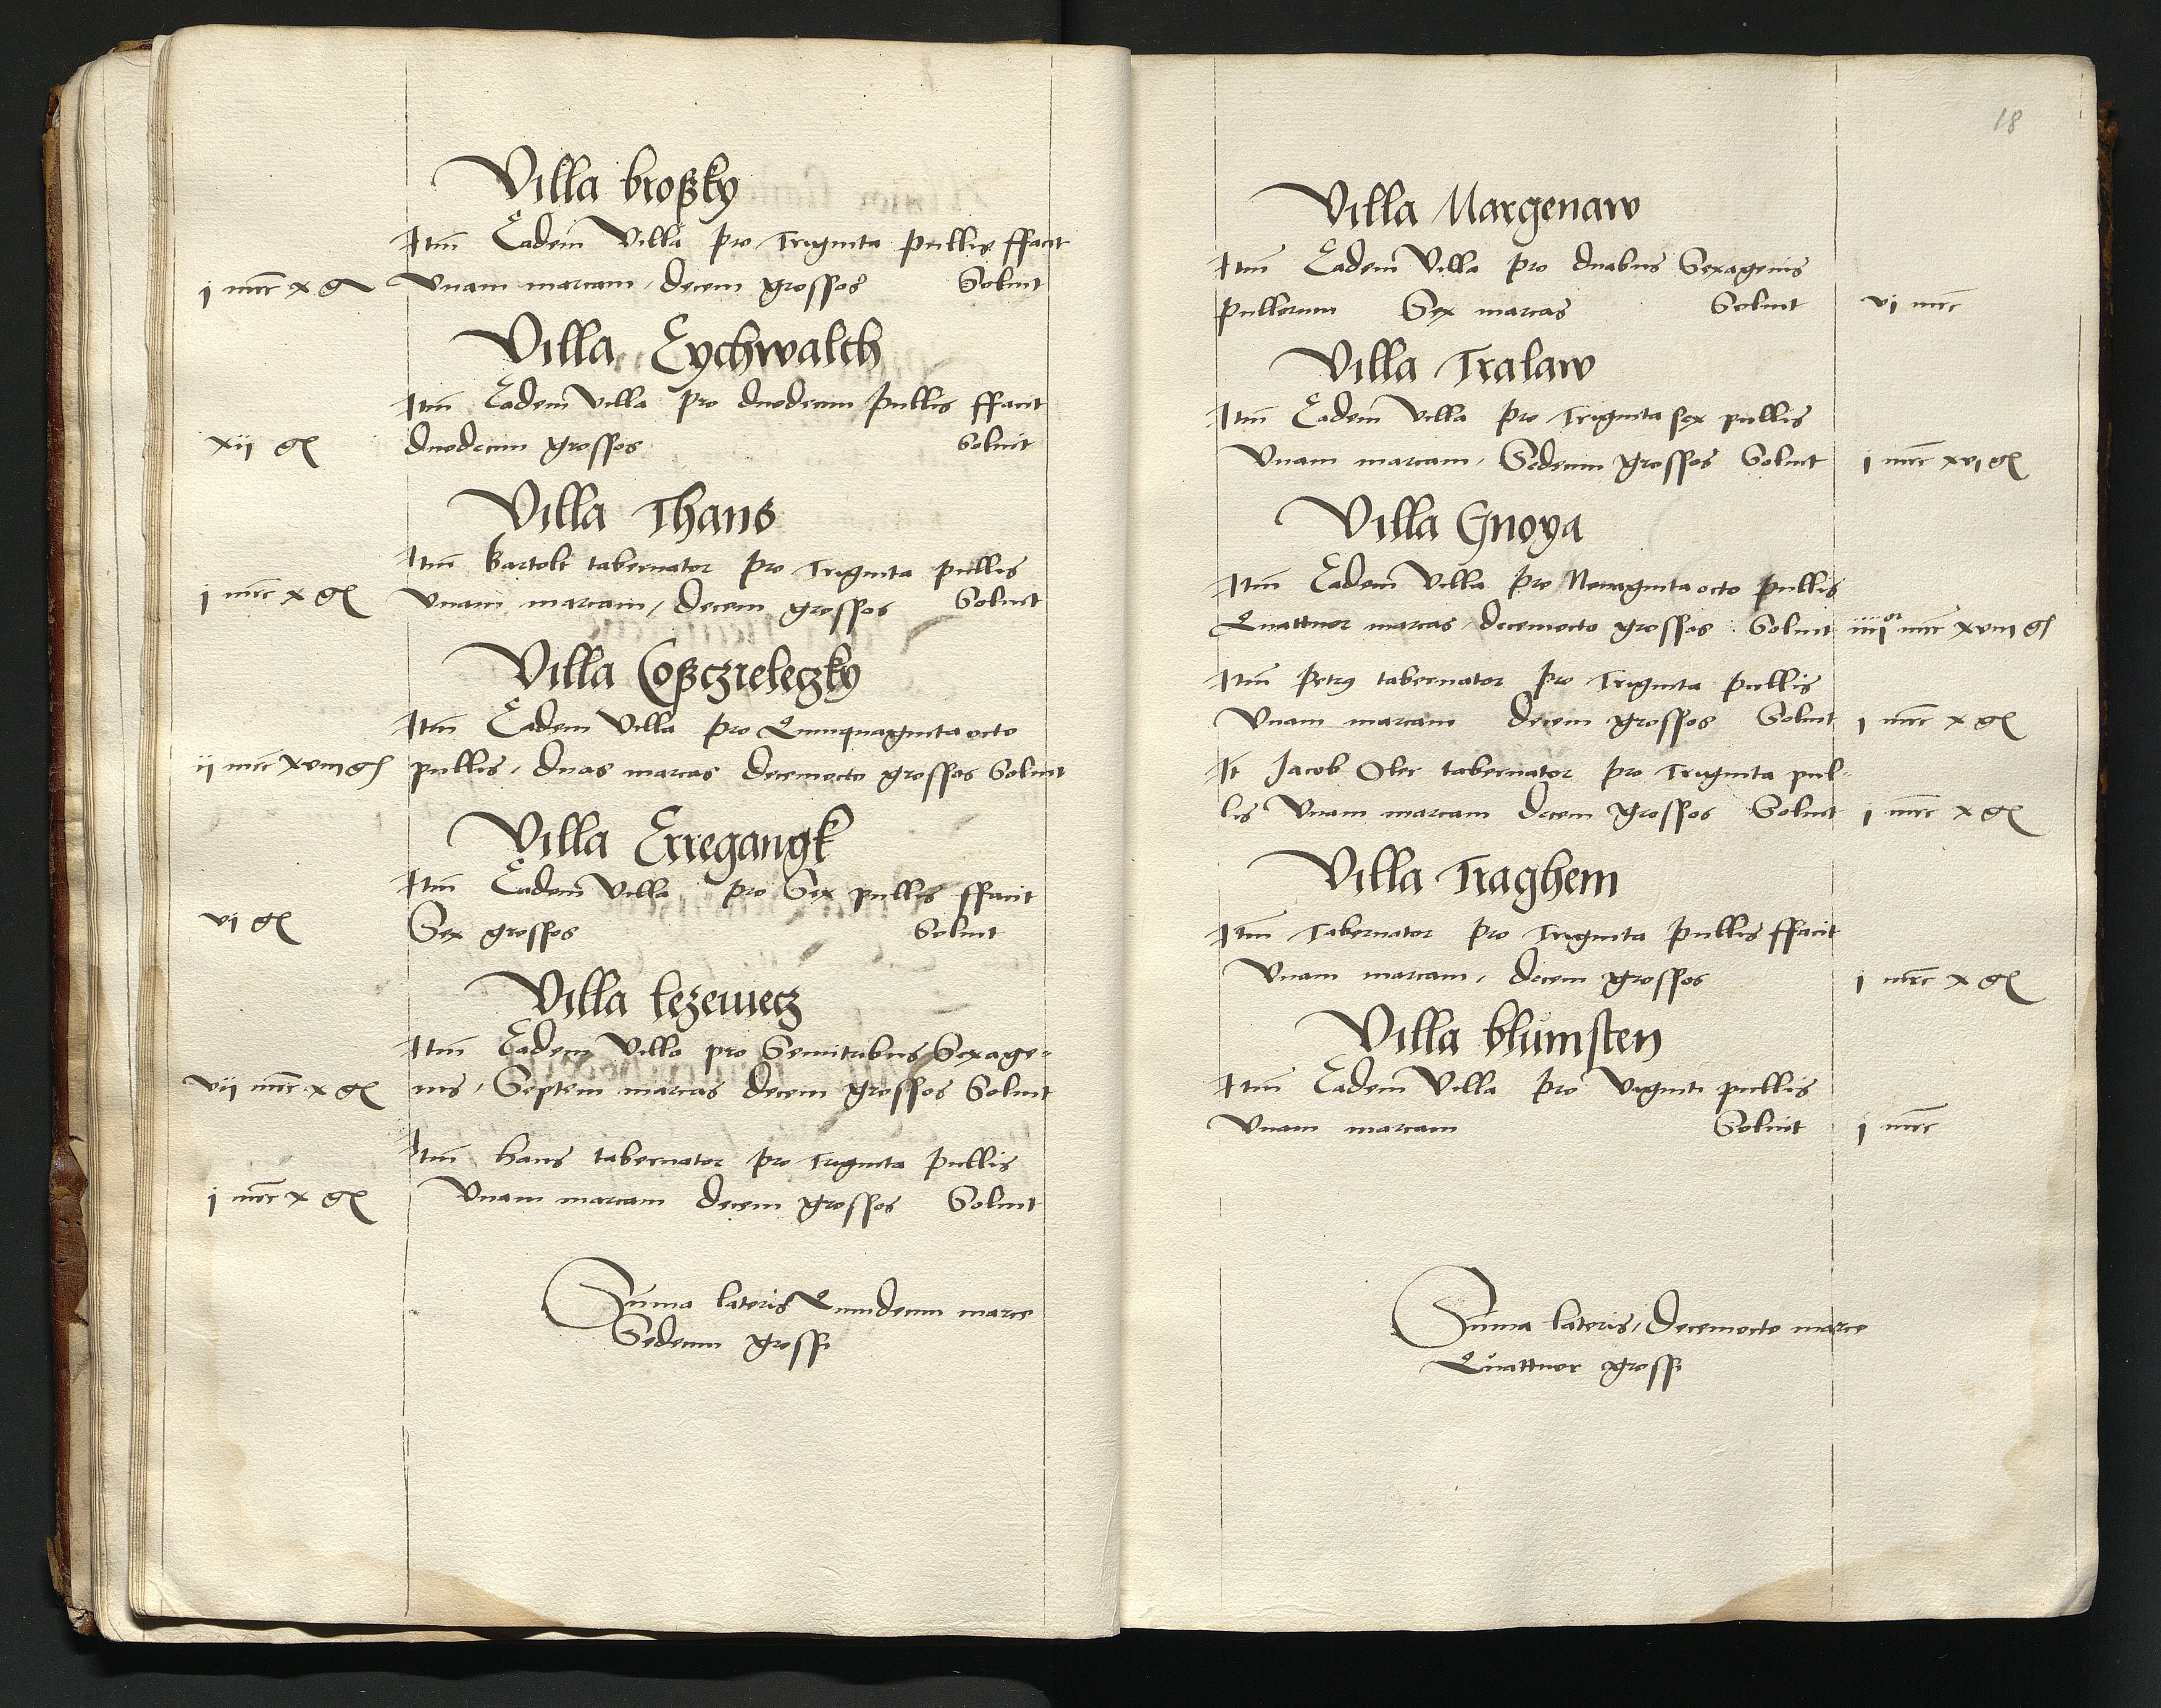 Villa broßky
Itm Eadem Villa pro Triginta pullis ffacit
j mrc x gr Vnam marcam, decem grossos Soluit
Villa Eychwalth
Itm Eadem Villa pro duodecim pullis ffacit
xij gr duodecim grossos Soluit
Villa Thans
Itm Bartolt tabernator pro Triginta pullis
j mrc x gr Vnam marcam, decem grossos Soluit
Villa Coßczieleczky
Itm Eadem Villa pro Quinquaginta octo
ij mrc xviij gr pullis, duas marcas decemocto grossos Soluit
Villa Erregangk
Itm Eadem Villa pro Sex pullis ffacit
vj gr Sex grossos Soluit
Villa lezewecz
Itm Eadem Villa pro Semitribus Sexage-
vij mrc x gr nis, Septem marcas decem grossos Soluit
Itm hans tabernator pro Triginta pullis
j mrc x gr Vnam marcam decem grossos Soluit
Suma lateris Quindecim marce
Sedecim grossi
18
Villa Margenaw
Itm Eadem Villa pro duabus Sexagenis
pullorum Sex marcas Soluit vj mrc
Villa Tralaw
Itm Eadem Villa pro Triginta sex pullis
Vnam marcam, Sedecim grossos Soluit j mrc xvj gr
Villa Gnoya
Itm Eadem Villa pro Nonaginta octo pullis
Quattuor marcas, decemocto grossos Soluit iiiior mrc xviij gr
Itm Petrus tabernator pro Triginta pullis
Vnam marcam decem grossos Soluit j mrc x gr
It Jacob Oler tabernator pro Triginta pul-
lis Vnam marcam decem grossos Soluit j mrc x gr
Villa Traghem
Itm Tabernator pro Triginta pullis ffacit
Vnam marcam, decem grossos j mrc x gr
Villa blumsten
Itm Eadem Villa pro Viginti pullis
Vnam marcam Soluit j mrc
Suma lateris, decemocto marce
Quattuor grossi